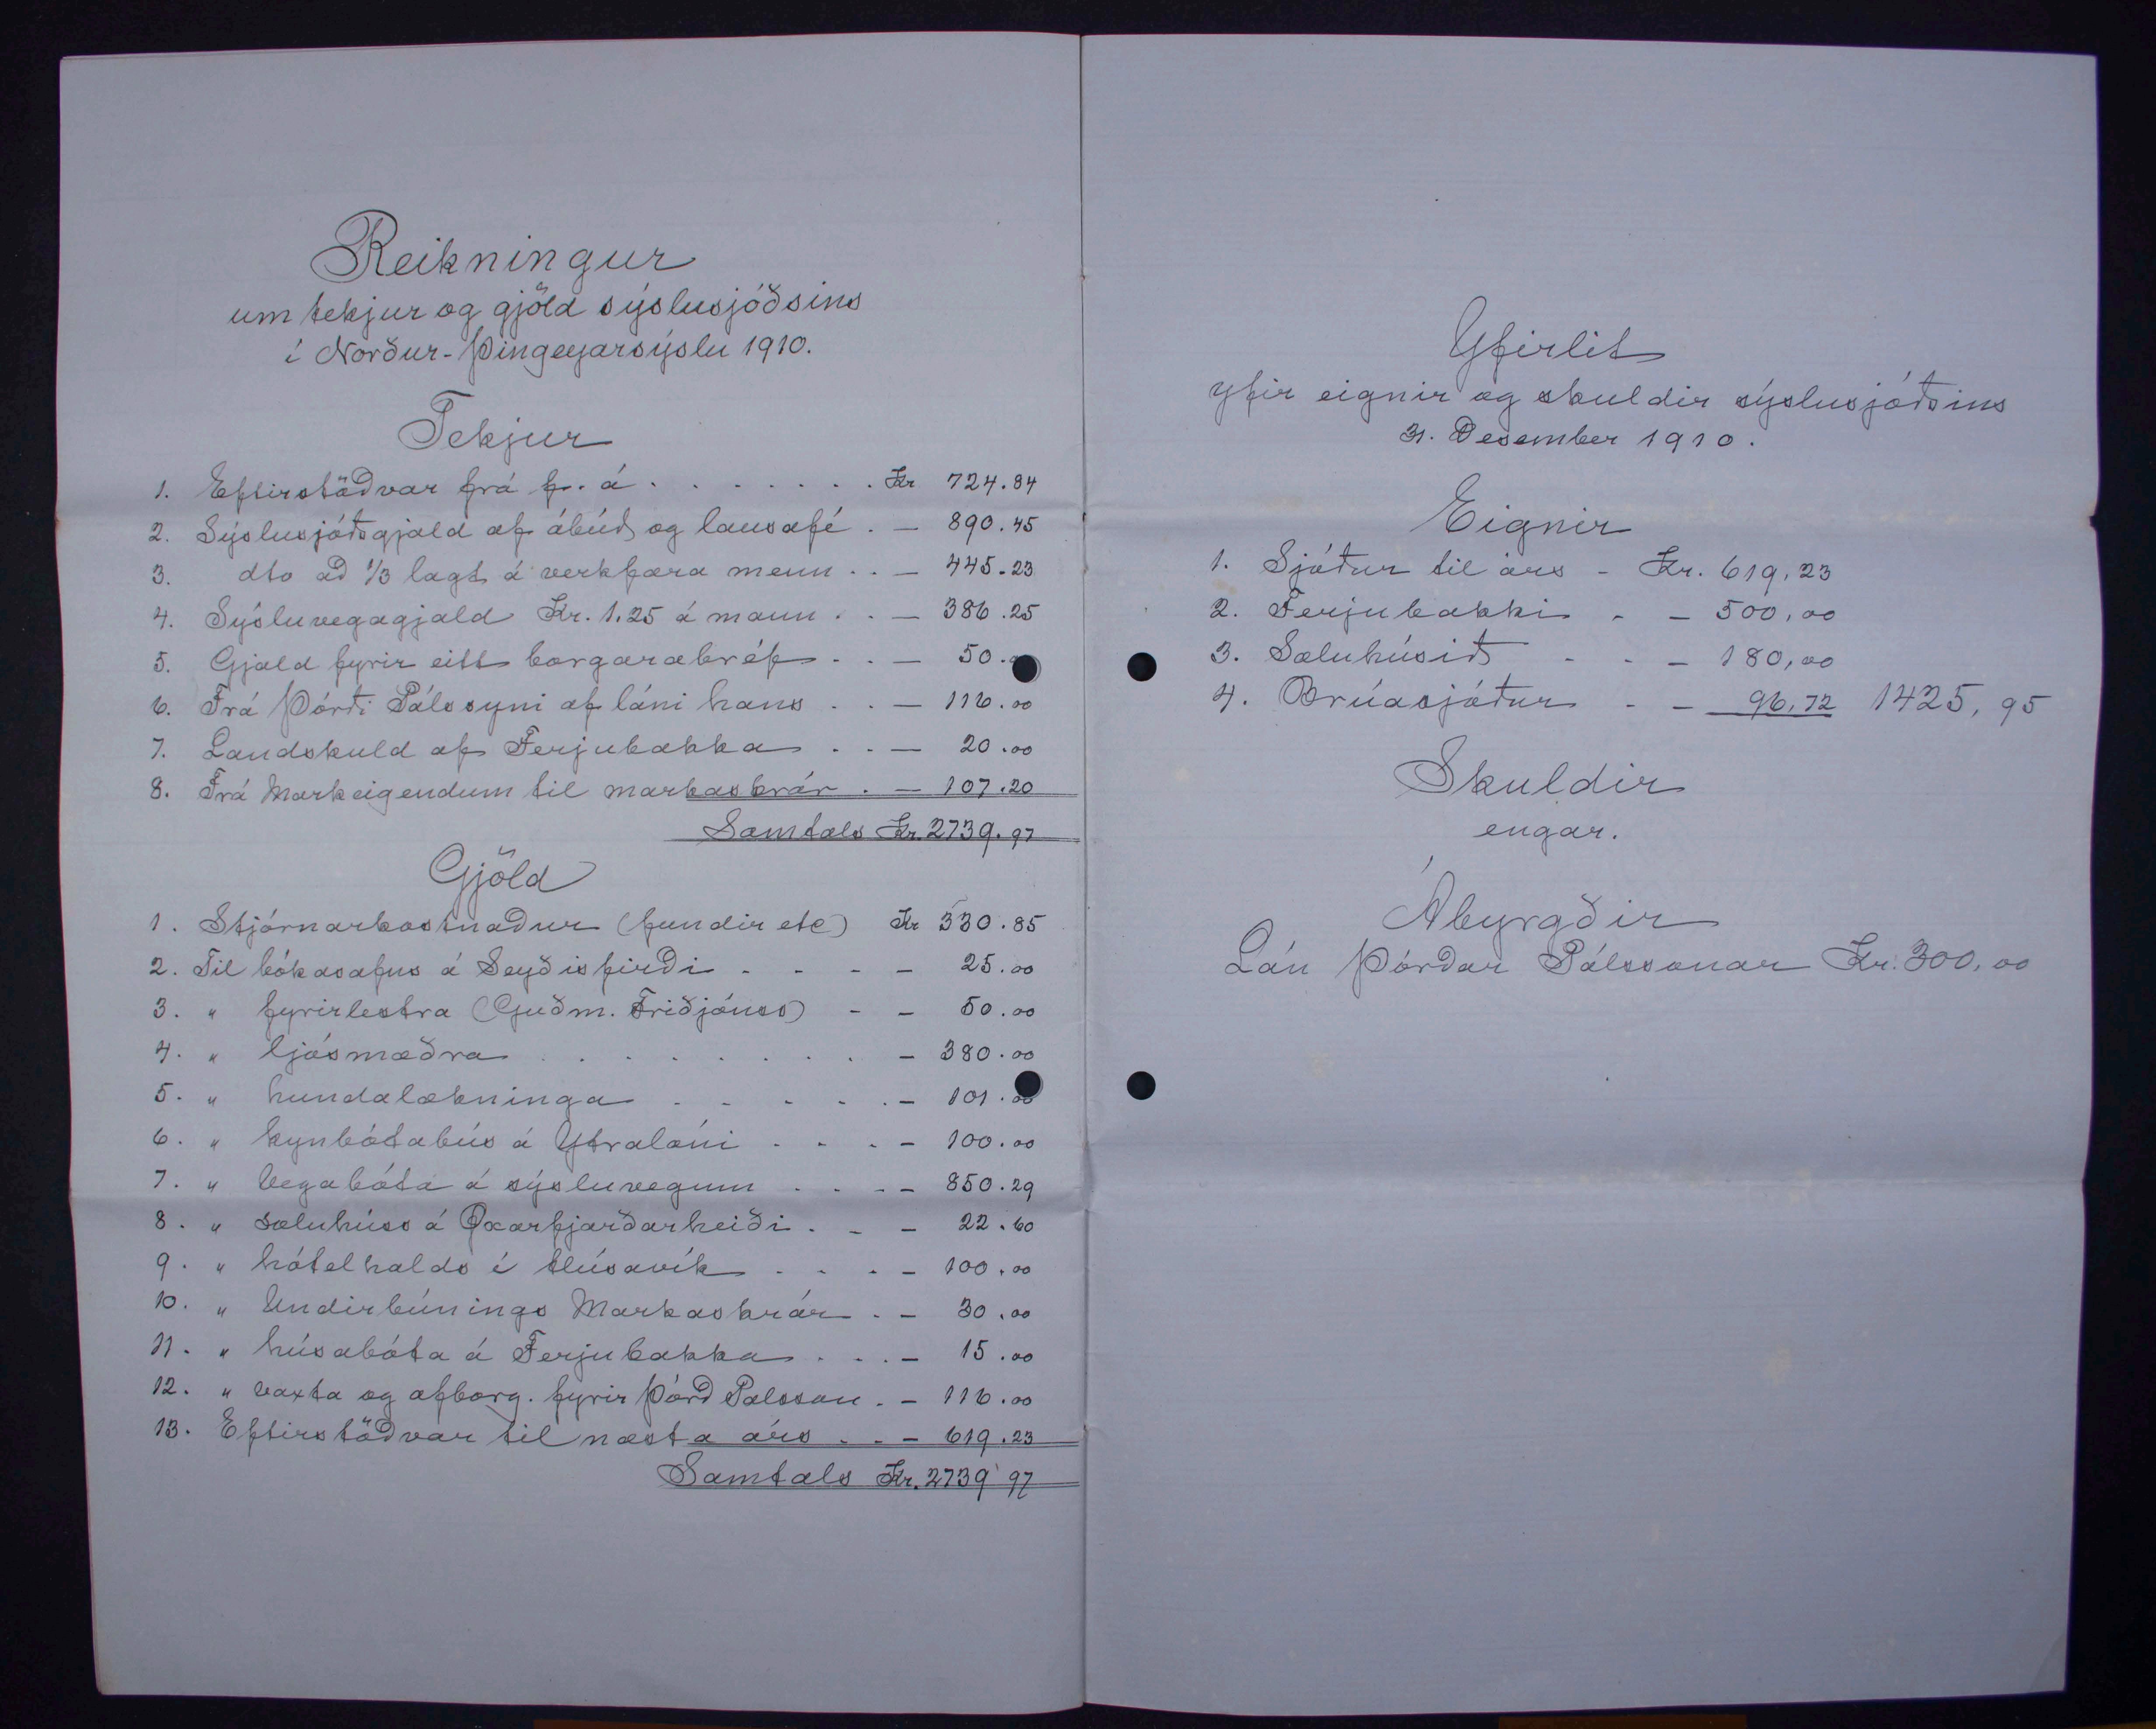 Reikningur
um tekjur og gjöld sýslusjóðsins
í Norður-Þingeyarsýslu 1910.
Tekjur
1. Eftirstöðvar frá f. á . . . . . . . Kr 724.84
2. Sýslusjóðsgjald af ábúð og lausafé . — 890.45
3. dto að 1/3 lagt á verkfæra menn . . — 445.23
4. Sýsluvegagjald Kr. 1.25 á mann . . — 386.25
5. Gjald fyrir eitt borgarabréf . . — 50.
6. Frá Þórði Pálssyni af láni hans . . — 116.00
7. Landskuld af Ferjubakka . . — 20.00
8. Frá Markeigendum til markaskrár . — 107.20
Samtals Kr. 2739.97
Gjöld
1. Stjórnarkostnaður (fundir etc) Kr 330.85
2. Til bókasafns á Seyðisfirði - - - - 25.00
3. " fyrirlestra (Guðm. Friðjónss) - - 50.00
4. " ljósmæðra . . . . . . . . - 380.00
5. " hundalækninga . - - - . - 101.00
6. " kynbótabús á Ytralóni - - . - 100.00
7. " Vegabóta á sýsluvegum . . - - 850.29
8. " sæluhúss á Öxarfjarðarheiði . - - 22.60
9. " hótelhalds í Húsavík . . . - 100.00
10. " Undirbúnings Markaskrár . - 30.00
11. " húsabóta á Ferjubakka . . . - 15.00
12. " vaxta og afborg. fyrir Þórð Palsson . - 116.00
13. Eftirstöðvar til næsta árs . . - 619.23
Samtals Kr. 2739 97
Yfirlit
yfir eignir og skuldir sýslusjóðsins
31. Desember 1910.
Eignir
1. Sjóður til árs - Kr. 619,23
2. Ferjubakki . - 500,00
3. Sæluhúsið - . - 180,00
4. Brúasjóður - - 96,72 1425,95
Skuldir
engar.
Ábyrgðir
Lán Þórðar Pálssonar Kr. 300,00